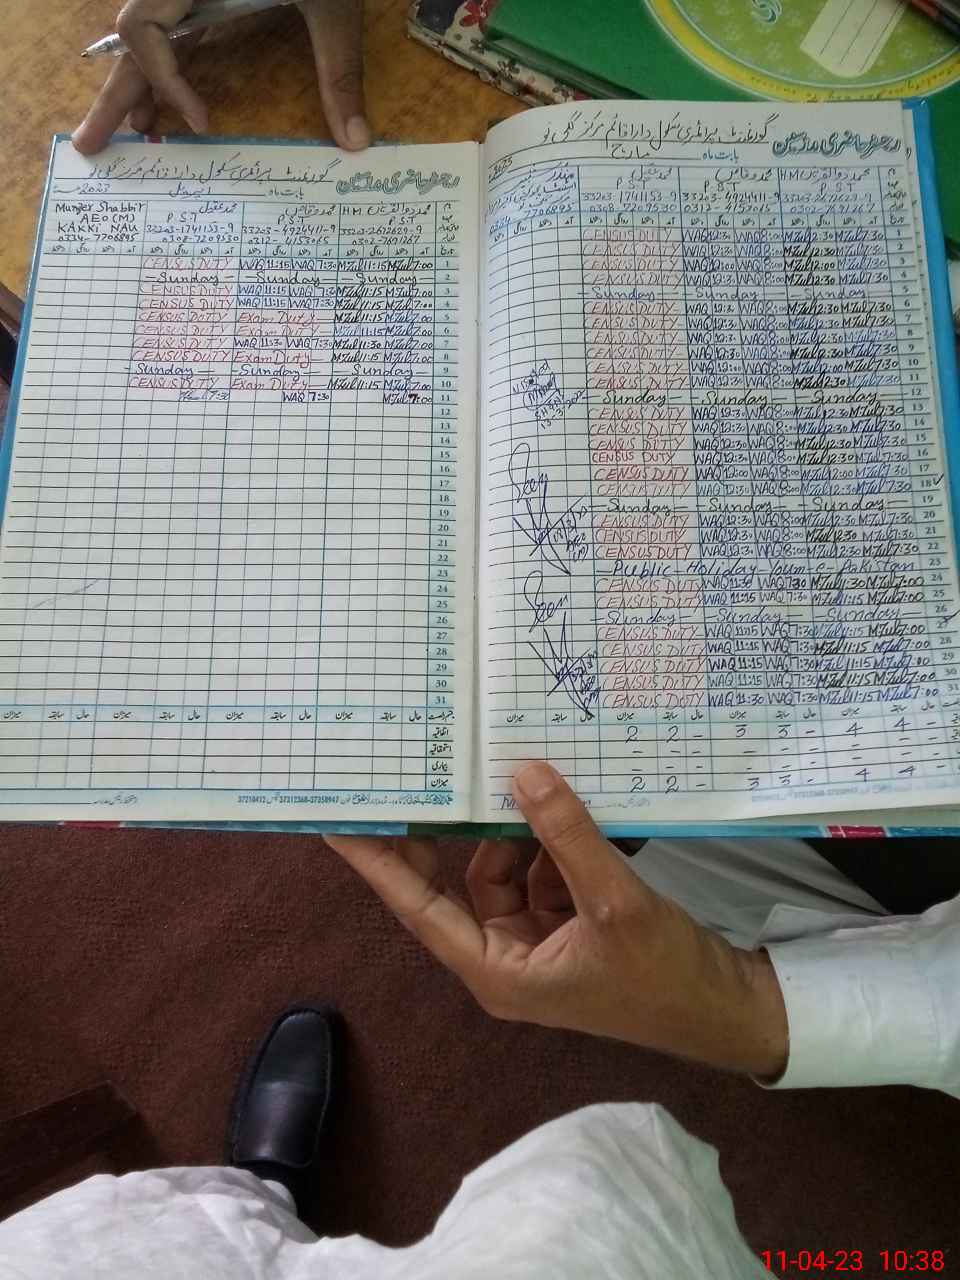 رجسٹر حاضری مدرسین گورنمنٹ پرائمری سکول دارا قائم مرکز ککی نو
بابت ماہ اپریل 2023
Munzer Shabbir
AEO (M)
KAKKI NAU
0334-7706895
محمد عقیل
P.S.T
33203-1741153-9
0308-7209530
محمد وقاص
P.S.T
33203-4924411-9
0312-4153065
HM محمد ذوالقرنین
P.S.T
33203-2612629-9
0302-7691267
CENSUS DUTY WAQ 11:15 WAQ 7:30 M Zul 11:15 M Zul 7:00 1
Sunday Sunday Sunday 2
CENSUS DUTY WAQ 11:15 WAQ 7:30 M Zul 11:15 M Zul 7:00 3
CENSUS DUTY WAQ 11:15 WAQ 7:30 M Zul 11:15 M Zul 7:00 4
CENSUS DUTY Exam Duty M Zul 11:15 M Zul 7:00 5
CENSUS DUTY Exam Duty M Zul 11:15 M Zul 7:00 6
CENSUS DUTY WAQ 11:30 WAQ 7:30 M Zul 11:30 M Zul 7:00 7
CENSUS DUTY Exam Duty M Zul 11:15 M Zul 7:00 8
Sunday Sunday Sunday 9
CENSUS DUTY Exam Duty M Zul 11:15 M Zul 7:00 10
7:30 WAQ 7:30 M Zul 7:00 11
12
13
14
15
16
17
18
19
20
21
22
23
24
25
26
27
28
29
30
31
میزان سابقہ حال میزان سابقہ حال میزان سابقہ حال میزان سابقہ حال
اتفاقیہ
استحقاقیہ
بیماری
میزان
37210412 37312368-37358947
رجسٹر حاضری مدرسین گورنمنٹ پرائمری سکول دارا قائم مرکز ککی نو
بابت ماہ مارچ
0334-7706895
محمد عقیل
P.S.T
33203-1741153-9
0308-7209530
محمد وقاص
P.S.T
33203-4924411-9
0312-4153065
HM محمد ذوالقرنین
P.S.T
33203-2612629-9
0302-7691267
CENSUS DUTY WAQ 12:30 WAQ 8:00 M Zul 12:30 M Zul 7:30 1
CENSUS DUTY WAQ 12:30 WAQ 8:00 M Zul 12:30 M Zul 7:30 2
CENSUS DUTY WAQ 12:00 WAQ 8:00 M Zul 12:00 M Zul 7:30 3
CENSUS DUTY WAQ 12:30 WAQ 8:00 M Zul 12:30 M Zul 7:30 4
Sunday Sunday Sunday 5
CENSUS DUTY WAQ 12:30 WAQ 8:00 M Zul 12:30 M Zul 7:30 6
CENSUS DUTY WAQ 12:30 WAQ 8:00 M Zul 12:30 M Zul 7:30 7
CENSUS DUTY WAQ 12:30 WAQ 8:00 M Zul 12:30 M Zul 7:30 8
CENSUS DUTY WAQ 12:30 WAQ 8:00 M Zul 12:30 M Zul 7:30 9
CENSUS DUTY WAQ 12:00 WAQ 8:00 M Zul 12:00 M Zul 7:30 10
CENSUS DUTY WAQ 12:30 WAQ 8:00 M Zul 12:30 M Zul 7:30 11
Sunday Sunday Sunday 12
CENSUS DUTY WAQ 12:30 WAQ 8:00 M Zul 12:30 M Zul 7:30 13
CENSUS DUTY WAQ 12:30 WAQ 8:00 M Zul 12:30 M Zul 7:30 14
CENSUS DUTY WAQ 12:30 WAQ 8:00 M Zul 12:30 M Zul 7:30 15
CENSUS DUTY WAQ 12:30 WAQ 8:00 M Zul 12:30 M Zul 7:30 16
CENSUS DUTY WAQ 12:00 WAQ 8:00 M Zul 12:00 M Zul 7:30 17
CENSUS DUTY WAQ 12:30 WAQ 8:00 M Zul 12:30 M Zul 7:30 18
Sunday Sunday Sunday 19
CENSUS DUTY WAQ 12:30 WAQ 8:00 M Zul 12:30 M Zul 7:30 20
CENSUS DUTY WAQ 12:30 WAQ 8:00 M Zul 12:30 M Zul 7:30 21
CENSUS DUTY WAQ 12:30 WAQ 8:00 M Zul 12:30 M Zul 7:30 22
Public Holiday Youm-e-Pakistan 23
CENSUS DUTY WAQ 11:30 WAQ 7:30 M Zul 11:30 M Zul 7:00 24
CENSUS DUTY WAQ 11:15 WAQ 7:30 M Zul 11:15 M Zul 7:00 25
Sunday Sunday Sunday 26
CENSUS DUTY WAQ 11:15 WAQ 7:30 M Zul 11:15 M Zul 7:00 27
CENSUS DUTY WAQ 11:15 WAQ 7:30 M Zul 11:15 M Zul 7:00 28
CENSUS DUTY WAQ 11:15 WAQ 7:30 M Zul 11:15 M Zul 7:00 29
CENSUS DUTY WAQ 11:15 WAQ 7:30 M Zul 11:15 M Zul 7:00 30
CENSUS DUTY WAQ 11:30 WAQ 7:30 M Zul 11:15 M Zul 7:00 31
میزان سابقہ حال میزان سابقہ حال میزان سابقہ حال میزان سابقہ
2 2 - 3 3 - 4 4 -
- - - - - -
- - - - - -
2 2 - 3 3 - 4 4 -
37312368-37358947
11-04-23 10:38